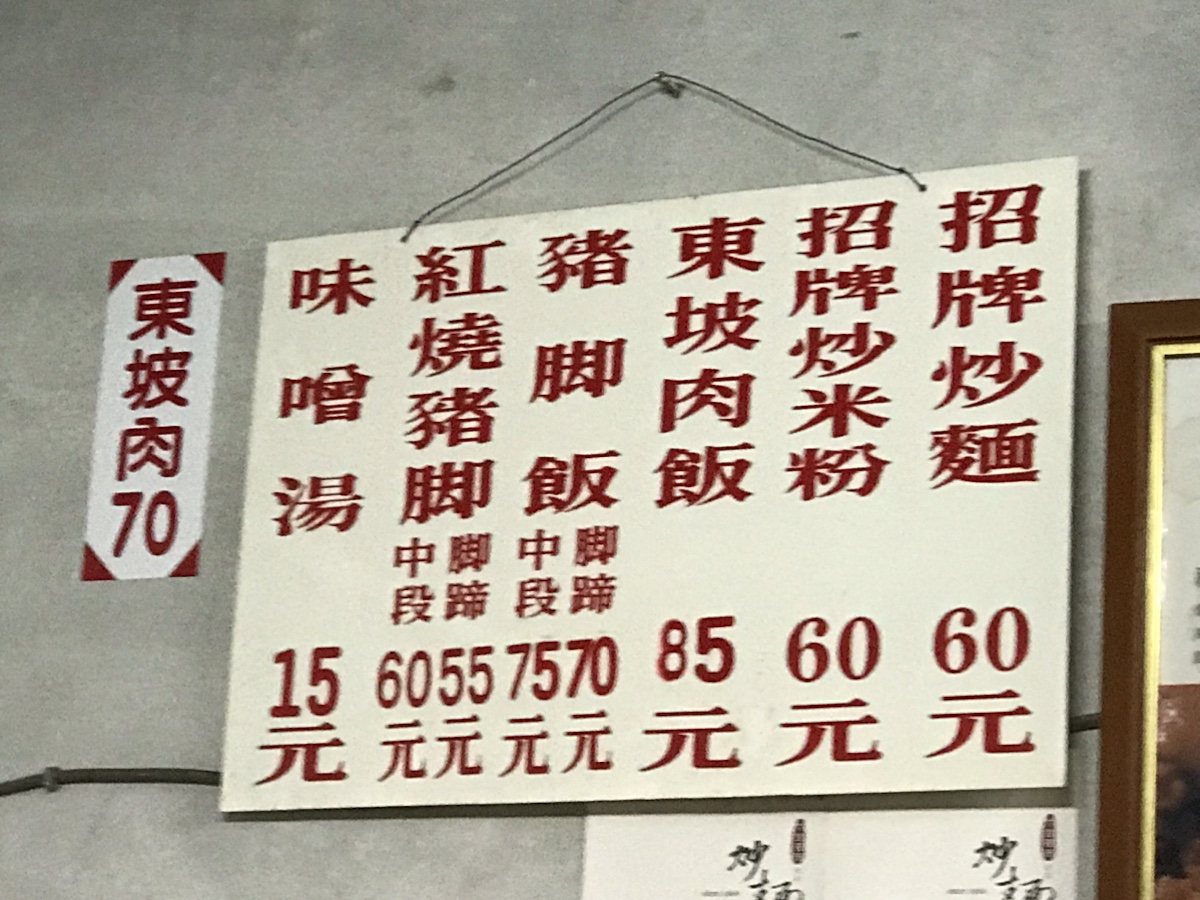 招牌炒麵
60元
招牌炒米粉
60元
東坡肉飯
85元
豬脚飯
脚蹄
70元
中段
75元
紅燒豬脚
脚蹄
55元
中段
60元
味噌湯
15元
東坡肉
70
炒麵
炒麵